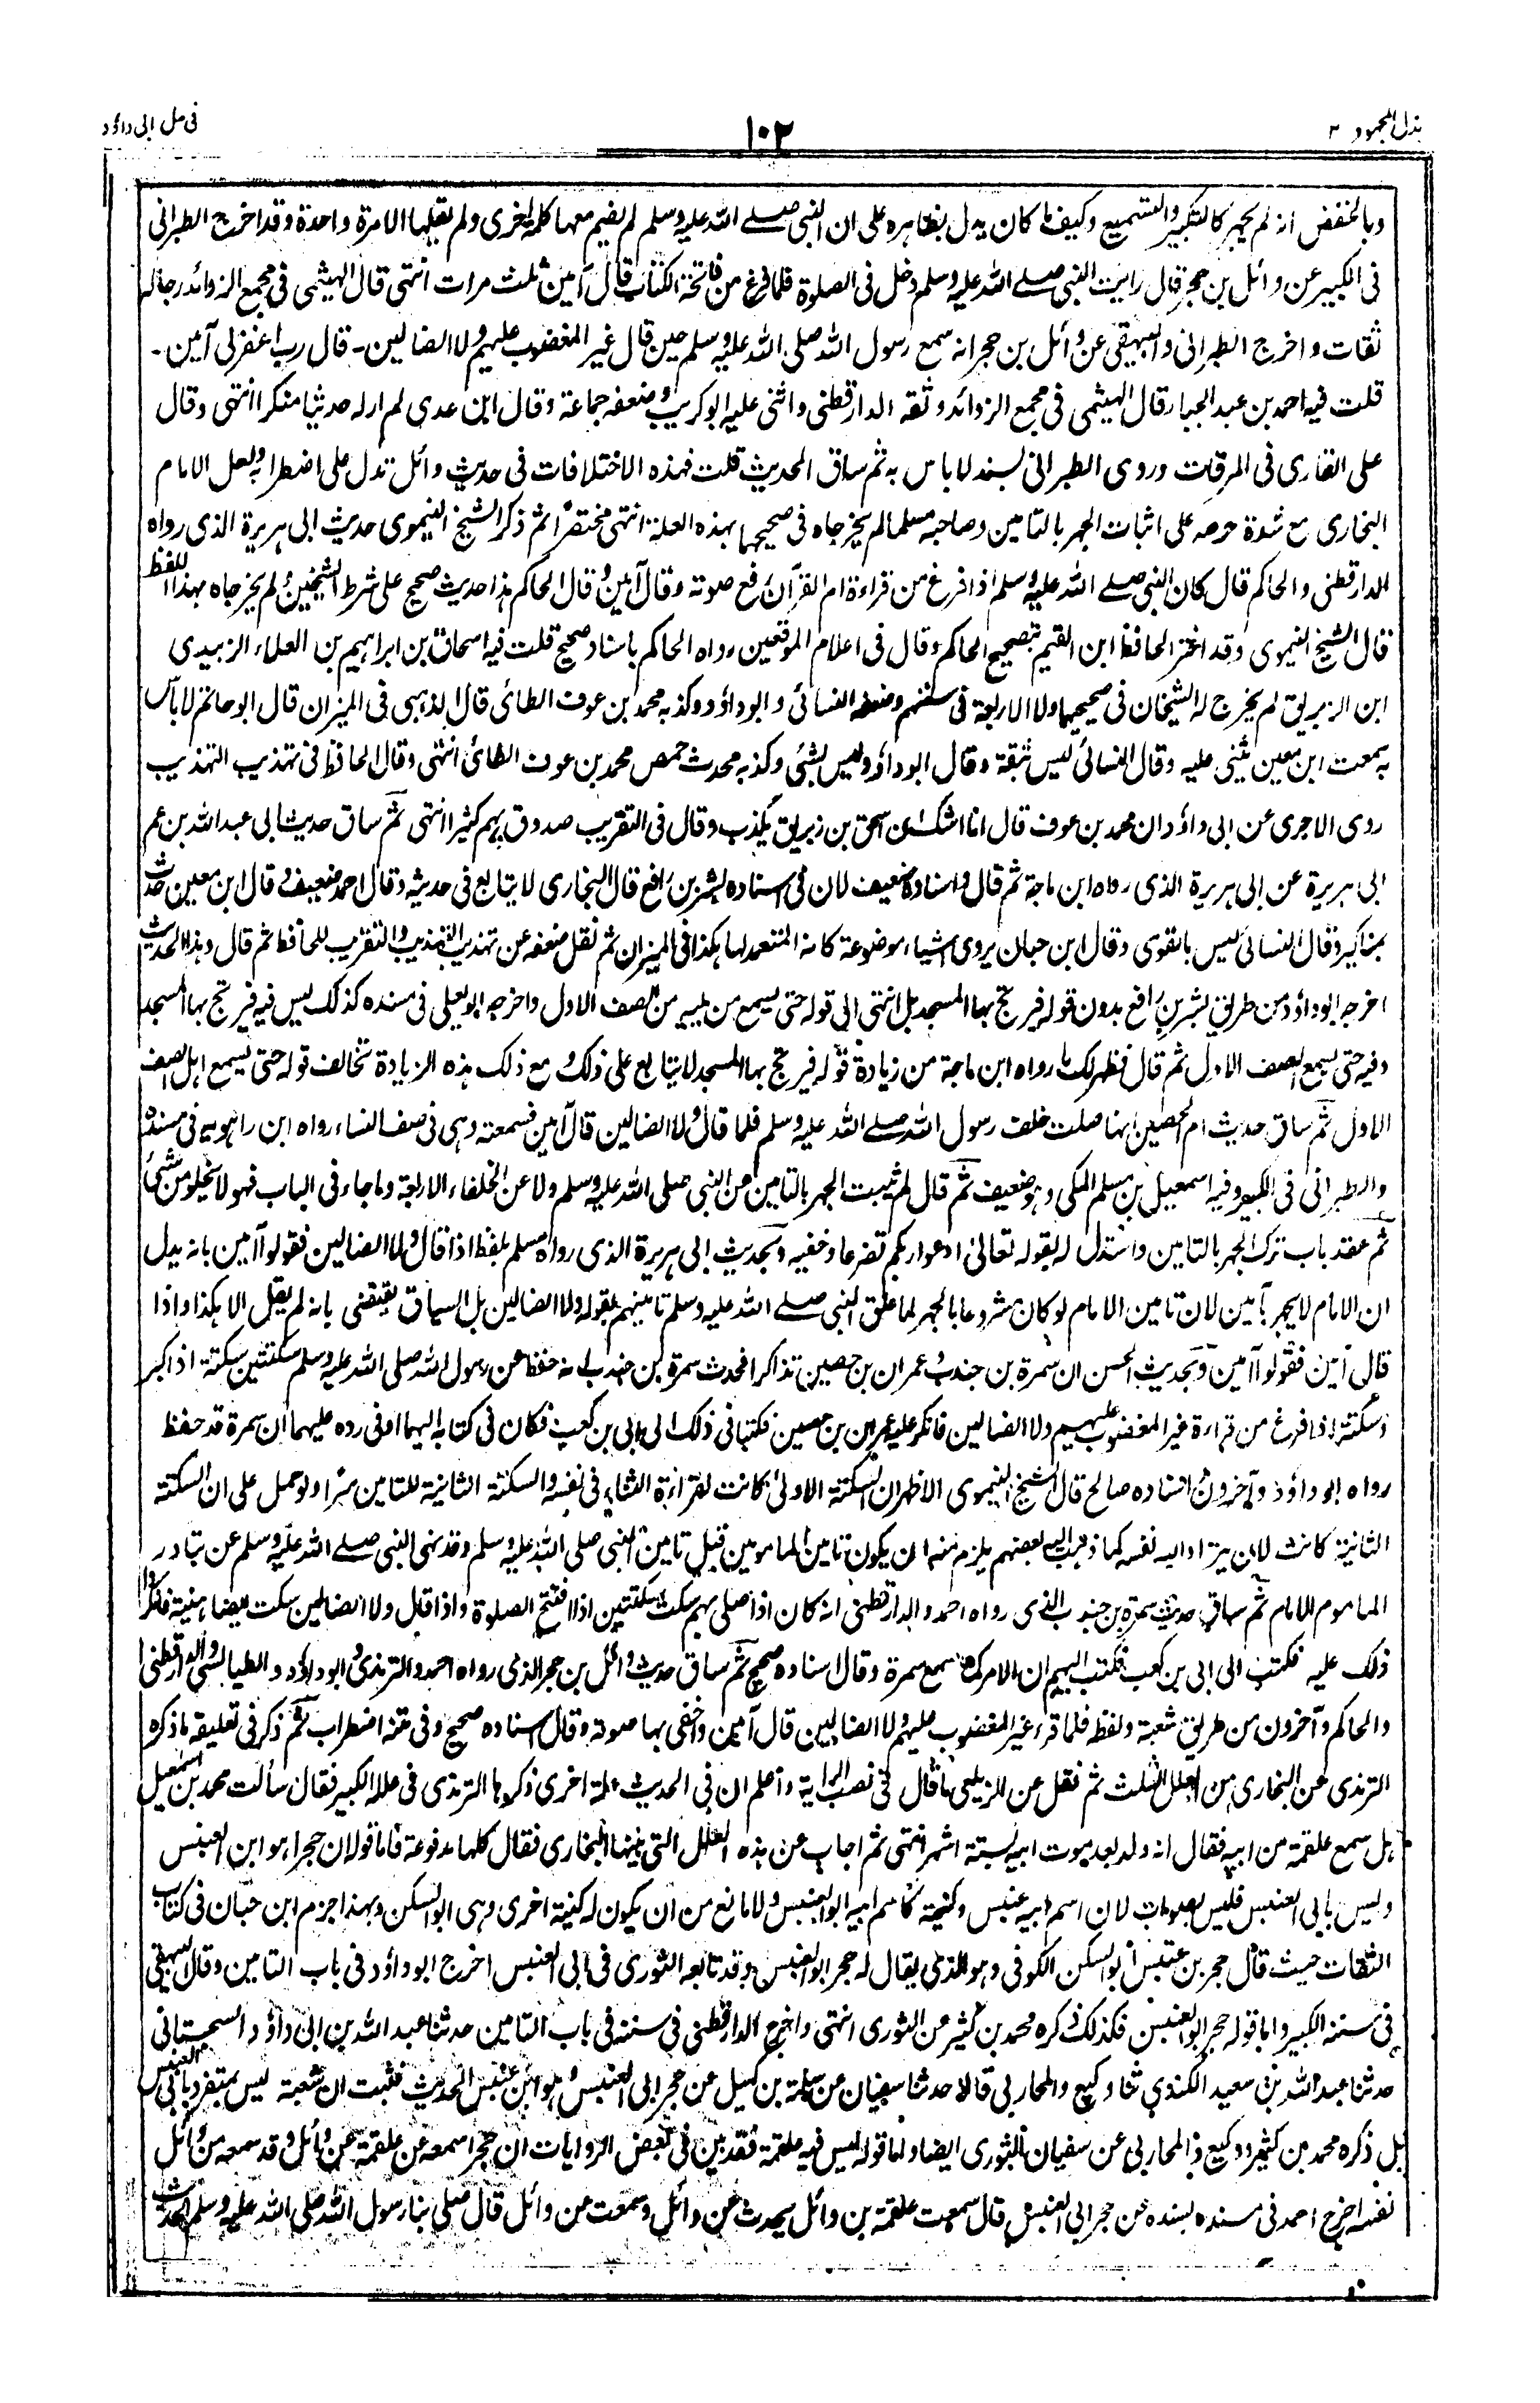 بذل المجهود ٢
١٠٢
فى حل ابى داؤد
وبالخفض انه لم يجهر كالتكبير والتسميع وكيف ما كان يدل بظاهره على ان النبى صلے الله عليه وسلم لم يضم معها كلمة اخرى ولم يقلها الا مرة واحدة وقد اخرج الطبرانى
فى الكبير عن وائل بن حجر قال رايت النبى صلے الله عليه وسلم دخل فى الصلوة فلما فرغ من فاتحة الكتاب قال آمين ثلث مرات انتهى قال الهيثمى فى مجمع الزوائد رجاله
ثقات واخرج الطبرانى والبيهقى عن وائل بن حجر انه سمع رسول الله صلى الله عليه وسلم حين قال غير المغضوب عليهم ولا الضالين۔ قال رب اغفرلى آمين۔
قلت فيه احمد بن عبد الجبار قال الهيثمى فى مجمع الزوائد وثقه الدارقطنى واثنى عليه ابو كريب وضعفه جماعة وقال ابن عدى لم ار له حديثا منكرا انتهى وقال
على القارى فى المرقات وروى الطبرانى بسند لا باس به ثم ساق الحديث قلت فهذه الاختلافات فى حديث وائل تدل على اضطرابه ولعل الامام
البخارى مع شدة حرصه على اثبات الجهر بالتامين وصاحبه مسلما لم يخرجاه فى صحيحهما بهذه العلة انتهى مختصرا ثم ذكر الشيخ النيموى حديث ابى هريرة الذى رواه
الدارقطنى والحاكم قال كان النبى صلے الله عليه وسلم اذا فرغ من قراءة ام القرآن رفع صوته وقال آمين وقال الحاكم هذا حديث صحيح على شرط الشيخين ولم يخرجاه بهذا اللفظ
قال الشيخ النيموى وقد اغتر الحافظ ابن القيم بتصحيح الحاكم وقال فى اعلام الموقعين رواه الحاكم باسناد صحيح قلت فيه اسحاق بن ابراهيم بن العلاء الزبيدى
ابن الزبريق لم يخرج له الشيخان فى صحيحيهما ولا الاربعة فى سننهم وضعفه النسائى وابو داؤد وكذبه محمد بن عوف الطائى قال الذهبى فى الميزان قال ابو حاتم لا بأس
به سمعت ابن معين يثنى عليه وقال النسائى ليس بثقة وقال ابو داؤد ليس بشئى وكذبه محدث حمص محمد بن عوف الطائى انتهى وقال الحافظ فى تهذيب التهذيب
روى الاجرى عن ابى داؤد ان محمد بن عوف قال ما اشك ان اسحق بن زبريق يكذب وقال فى التقريب صدوق يهم كثيرا انتهى ثم ساق حديث ابى عبد الله بن عم
ابى هريرة عن ابى هريرة الذى رواه ابن ماجة ثم قال واسناده ضعيف لان فى اسناده بشر بن رافع قال البخارى لا يتابع فى حديثه وقال احمد ضعيف وقال ابن معين حدث
بمناكير وقال النسائى ليس بالقوى وقال ابن حبان يروى اشياء موضوعة كانه المتعمد لها هكذا فى الميزان ثم نقل ضعفه عن تهذيب التهذيب والتقريب للحافظ ثم قال وهذا الحديث
اخرجه ابو داؤد من طريق بشر بن رافع بدون قوله فيرتج بها المسجد بل انتهى الى قوله حتى يسمع من يليه من الصف الاول واخرجه ابو يعلى فى مسنده كذلك ليس فيه فيرتج بها المسجد
وفيه حتى يسمع الصف الاول ثم قال فظهر لك ما رواه ابن ماجة من زيادة قوله فيرتج بها المسجد لا يتابع على ذلك ومع ذلك هذه الزيادة تخالف قوله حتى يسمع اهل الصف
الاول ثم ساق حديث ام الحصين انها صلت خلف رسول الله صلے الله عليه وسلم فلما قال ولا الضالين قال آمين فسمعته وهى فى صف النساء رواه ابن راهويه فى مسنده
والطبرانى فى الكبير وفيه اسمعيل بن مسلم المكى وهو ضعيف ثم قال لم يثبت الجهر بالتامين من النبى صلى الله عليه وسلم ولا عن الخلفاء الاربعة وما جاء فى الباب فهو لا يخلو من شئى
ثم عقد باب ترك الجهر بالتامين واستدل له بقوله تعالى ادعوا ربكم تضرعا وخفيه وبحديث ابى هريرة الذى رواه مسلم بلفظ اذا قال ولا الضالين فقولوا آمين بانه يدل
ان الامام لا يجهر بآمين لان تامين الامام لو كان مشروعا بالجهر لما علق النبى صلے الله عليه وسلم تامينهم بقوله ولا الضالين بل السياق يقتضى بانه لم يقل الا هكذا واذا
قال آمين فقولوا آمين وبحديث الحسن ان سمرة بن جندب وعمران بن حصين تذاكرا فحدث سمرة بن جندب انه حفظ عن رسول الله صلى الله عليه وسلم سكتتين سكتة اذا كبر
وسكتة اذا فرغ من قراءة غير المغضوب عليهم ولا الضالين فانكر عليه عمران بن حصين فكتبا فى ذلك الى ابى بن كعب فكان فى كتابه اليهما او فى رده عليهما ان سمرة قد حفظ
رواه ابو داؤد وآخرون اسناده صالح قال الشيخ النيموى الاظهر ان السكتة الاولى كانت لقراءة الثناء فى نفسه والسكتة الثانية للتامين سرا ولو حمل على ان السكتة
الثانية كانت لان يتراد اليه نفسه كما ذهب اليه بعضهم يلزم منه ان يكون تامين المامومين قبل تامين النبى صلى الله عليه وسلم وقد نهى النبى صلے الله عليه وسلم عن تبادر
الماموم الامام ثم ساق حديث سمرة بن جندب الذى رواه احمد والدارقطنى انه كان اذا صلى بهم سكت سكتتين اذا افتتح الصلوة واذا قال ولا الضالين سكت ايضا هنية فانكروا
ذلك عليه فكتب الى ابى بن كعب فكتب اليهم ان الامر كما صنع سمرة وقال اسناده صحيح ثم ساق حديث وائل بن حجر الذى رواه احمد والترمذى وابو داؤد والطيالسى والدارقطنى
والحاكم وآخرون من طريق شعبة ولفظه فلما قرء غير المغضوب عليهم ولا الضالين قال آمين واخفى بها صوته وقال اسناده صحيح وفى متنه اضطراب ثم ذكر فى تعليقه ما ذكره
الترمذى عن البخارى من العلل الثلث ثم نقل عن الزيلعى ما قال فى نصب الراية واعلم ان فى الحديث علة اخرى ذكرها الترمذى فى علله الكبير فقال سألت محمد بن اسمعيل
هل سمع علقمة من ابيه فقال انه ولد بعد موت ابيه لستة اشهر انتهى ثم اجاب عن هذه العلل التى بينها البخارى فقال كلها مدفوعة فاما قوله ان حجرا هو ابن العنبس
وليس بابى العنبس فليس بصواب لان اسم ابيه عنبس وكنيته كاسم ابيه ابو العنبس ولا مانع من ان يكون له كنية اخرى وهى ابو السكن وبهذا جزم ابن حبان فى كتاب
الثقات حيث قال حجر بن عنبس ابو السكن الكوفى وهو الذى يقال له حجر ابو العنبس وقد تابعه الثورى فى ابى العنبس اخرج ابو داؤد فى باب التامين وقال البيهقى
فى سننه الكبير واما قوله حجر ابو العنبس فكذلك ذكره محمد بن كثير عن الثورى انتهى واخرج الدارقطنى فى سننه فى باب التامين حدثنا عبد الله بن ابى داؤد السجستانى
حدثنا عبد الله بن سعيد الكندى ثنا وكيع والمحاربى قالا حدثنا سفيان عن سلمة بن كهيل عن حجر ابى العنبس وهو ابن عنبس الحديث فثبت ان شعبة ليس بمتفرد بابى العنبس
بل ذكره محمد بن كثير ووكيع والمحاربى عن سفيان الثورى ايضا واما قوله ليس فيه علقمة فقد بين فى بعض الروايات ان حجرا سمعه عن علقمة عن وائل وقد سمعه من وائل
نفسه اخرج احمد فى مسنده بسنده عن حجر ابى العنبس قال سمعت علقمة بن وائل يحدث عن وائل وسمعت من وائل قال صلى بنا رسول الله صلى الله عليه وسلم الحديث